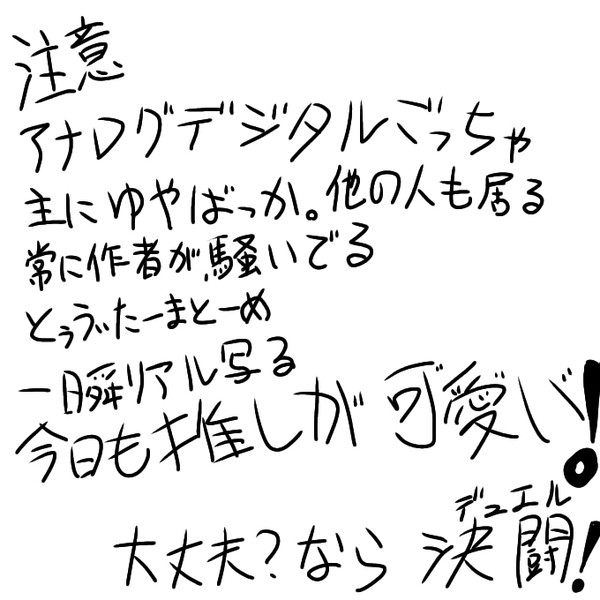 注意
アナログデジタルごっちゃ
主にゆやばっか。他の人も居る
常に作者が騒いでる
とぅうぃたーまとーめ
一瞬リアル写る
今日も推しが可愛い!
デュエル
大丈夫?なら決闘!